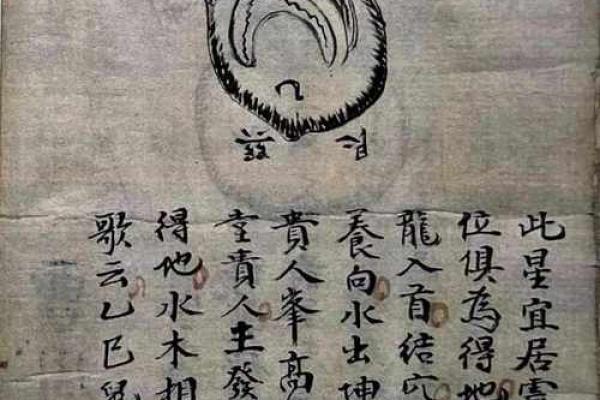 此星宜居
位俱為得地
龍入首結穴
養向水出坤
貴人峯高
堂貴人主發
得地水木相
歌云乙巳